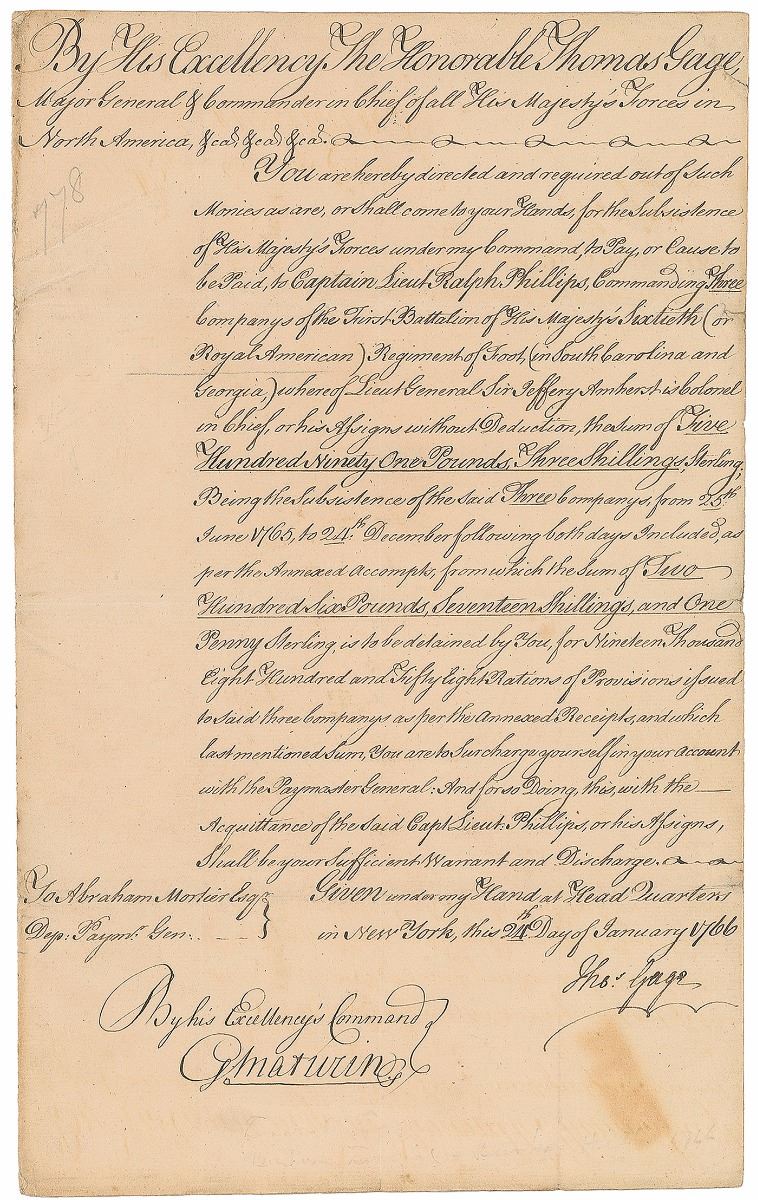 By His Excellency The Honorable Thomas Gage,
Major General & Commander in Chief of all His Majesty's Forces in
North America, &ca, &ca, &ca.
You are hereby directed and required out of Such
Monies as are, or Shall come to your Hands, for the Subsistence
of His Majesty's Forces under my Command, to Pay, or Cause to
be Paid, to Captain Lieut Ralph Phillips, Commanding Three
Companys of the First Battalion of His Majesty's Sixtieth (or
Royal American) Regiment of Foot, (in South Carolina and
Georgia,) whereof Lieut General Sir Jeffery Amherst is Colonel
in Chief, or his Assigns without Deduction, the Sum of Five
Hundred Ninety One Pounds, Three Shillings, Sterling,
Being the Subsistence of the said Three Companys, from 25th
June 1765, to 24th December following both days Included, as
per the Annexed Accompts, from which the Sum of Two
Hundred Six Pounds, Seventeen Shillings, and One
Penny Sterling, is to be detained by You, for Nineteen Thousand
Eight Hundred and Fifty Eight Rations of Provisions issued
to said three Companys as per the Annexed Receipts, and which
last mentioned Sum, You are to Surcharge yourself in your Account
with the Paymaster General: And for so Doing, this, with the
Acquittance of the said Capt Lieut: Phillips, or his Assigns,
Shall be your Sufficient Warrant and Discharge.
Given under my Hand at Head Quarters
in New York, this 24th Day of January 1766
To Abraham Mortier Esqr
Dep: Paymr Gen:
Thos Gage
By his Excellency's Command
G Maturin
778